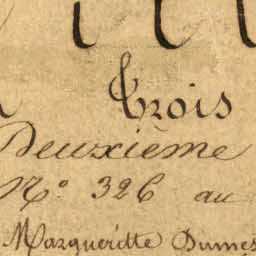 Trois
Deuxième
N.º 326 au
Margueritte Dumes